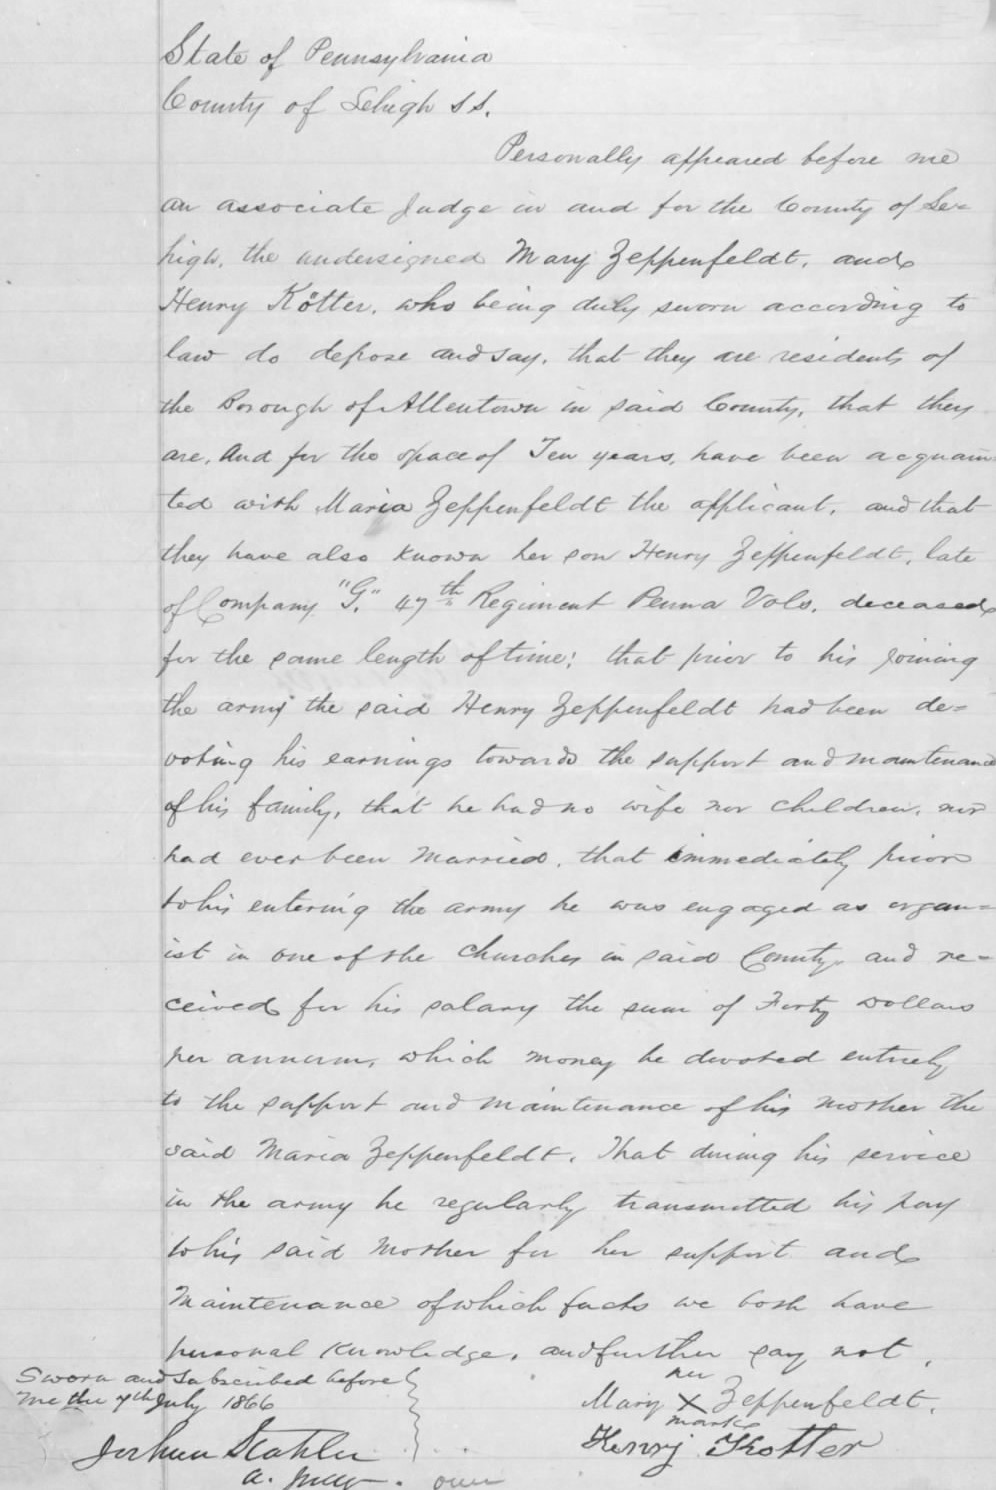 State of Pennsylvania
County of Lehigh S.S.
Personally appeared before me
an associate Judge in and for the County of Le=
high, the undersigned Mary Zeppenfeldt, and
Henry Kötter, who being duly sworn according to
law do depose and say, that they are residents of
the Borough of Allentown in said County, that they
are, and for the space of Ten years, have been acquain=
ted with Maria Zeppenfeldt the applicant, and that
they have also known her son Henry Zeppenfeldt, late
of Company "G." 47th Regiment Penna Vols. deceased
for the same length of time; that prior to his joining
the army the said Henry Zeppenfeldt had been de=
voting his earnings towards the support and maintenance
of his family, that he had no wife nor children, nor
had ever been married, that immediately prior
to his entering the army he was engaged as organ=
ist in one of the Churches in said County, and re=
ceived for his salary the sum of Forty Dollars
per annum, which money he devoted entirely
to the support and maintenance of his mother the
said Maria Zeppenfeldt. That during his service
in the army he regularly transmitted his pay
to his said Mother for her support and
Maintenance of which facts we both have
personal knowledge, and further say not.
Sworn and Subscribed before
me the 7th July 1866
her
Mary X Zeppenfeldt.
mark
Joshua Stahler
Henry Kotter
a. Judge. over